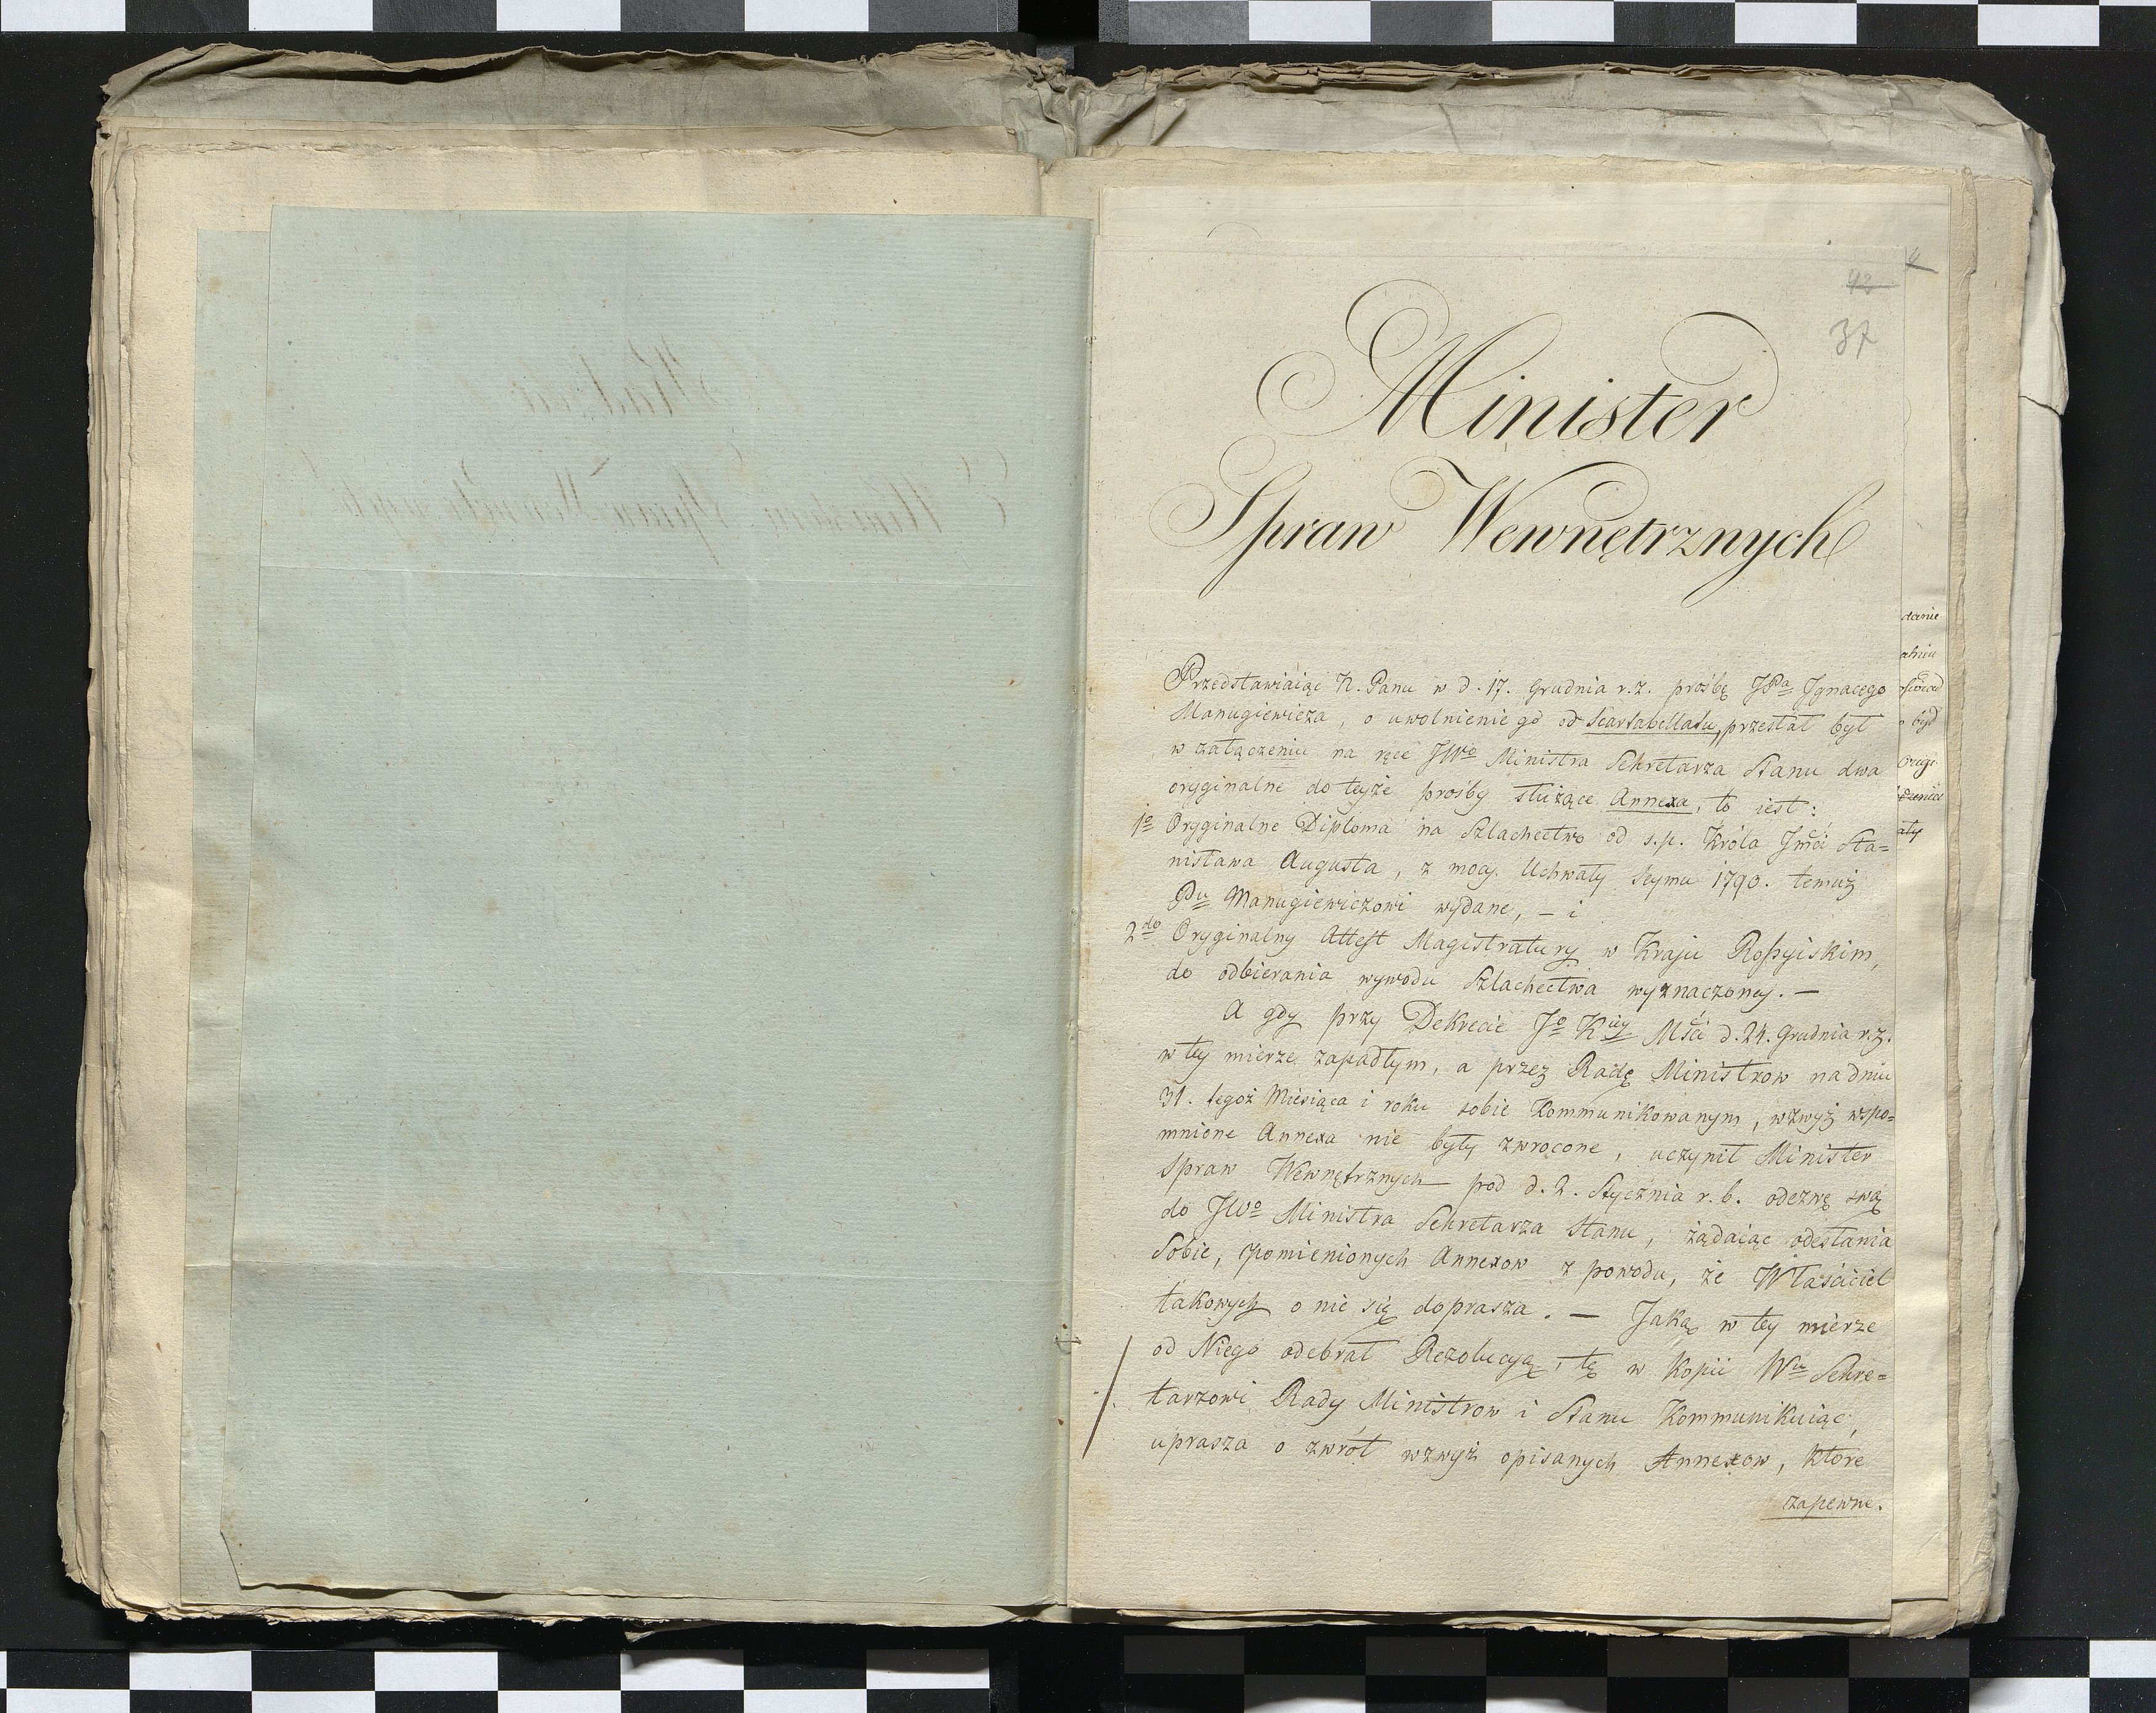 42
37
Minister
Spraw Wewnętrznych
Przedstawiaiąc N. Panu w d. 17. Grudnia r. z. prośbę JPa Jgnacego
Manugiewicza, o uwolnienie go od Scartabellatu, przesłał był
w załączeniu na ręce JWo Ministra Sekretarza Stanu dwa
oryginalne do teyże prośby służące Annexa, to iest:
1o Oryginalne Diploma na Szlachectwo od s. p. Króla Jmći Sta=
nisława Augusta, z mocy Uchwały Seymu 1790. temuż
Pu Manugiewiczowi wydane, – i
2do Oryginalny Attest Magistratury w Kraju Roßyiskim,
do odbierania wywodu Szlachectwa wyznaczoney. –
A gdy przy Dekrecie Jo Kiey Mśći d. 24. Grudnia r. z.
w tey mierze zapadłym, a przez Radę Ministrow na dniu
31. tegoż Miesiąca i roku sobie Kommunikowanym, wzwyż wspo=
mnione Annexa nie były zwrocone, uczynił Minister
Spraw Wewnętrznych pod d. 2. Stycznia r. b. odezwę swą
do JWo Ministra Sekretarza Stanu, żądaiąc odesłania
Sobie, pomienionych Annexow z powodu, że Właściciel
takowych o nie się doprasza. – Jaką w tey mierze
od Niego odebrał Rezolucyą, tę w Kopii Wu Sekre=
tarzowi Rady Ministrow i Stanu Kommunikuiąc,
uprasza o zwrót wzwyż opisanych Annexow, które
zapewne.